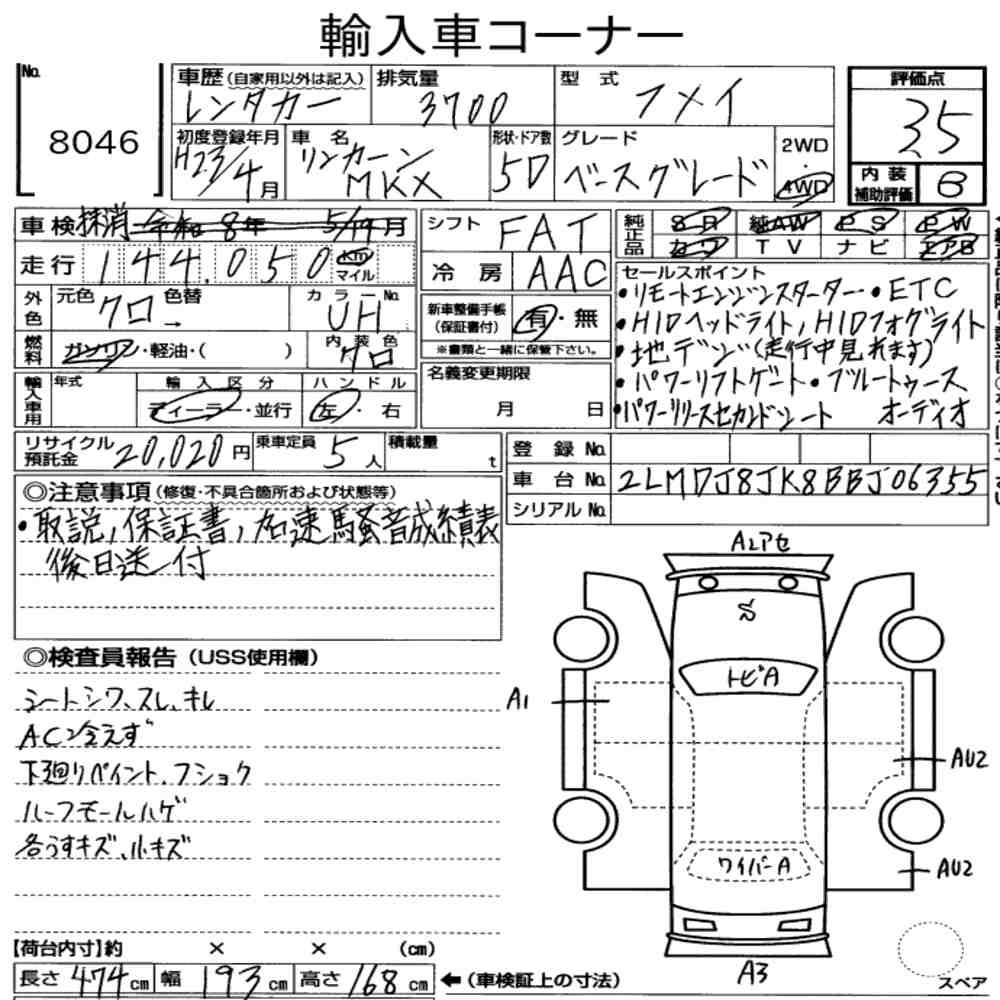 輸入車コーナー
No.
8046
車歴(自家用以外は記入)
レンタカー
排気量
3700
型式
フメイ
評価点
3.5
初度登録年月
H23/4月
車名
リンカーン
MKX
形状・ドア数
5D
グレード
ベースグレード
2WD
・
4WD
内装
補助評価
B
車検 抹消 令和 8年 5/19月
走行 144.050 Km
マイル
外色
元色 クロ 色替 →
カラーNo.
UH
燃料
ガソリン・軽油・( )
内装色
クロ
輸入車用
年式
輸入区分
ディーラー・並行
ハンドル
左・右
シフト
FAT
冷房
AAC
新車整備手帳
(保証書付)
有・無
※書類と一緒に保管下さい。
名義変更期限
月 日
純正品
SR 純AW PS PW
カワ TV ナビ エアB
セールスポイント
・リモートエンジンスターター・ETC
・HIDヘッドライト,HIDフォグライト
・地デジ(走行中見れます)
・パワーリフトゲート・ブルートゥース
・パワーリリースセカンドシート オーディオ
リサイクル
預託金
20,020円
乗車定員
5人
積載量
t
登録No.
車台No. 2LMDJ8JK8BBJ06355
シリアルNo.
◎注意事項(修復・不具合箇所および状態等)
・取説,保証書,加速騒音成績表
後日送付
◎検査員報告(USS使用欄)
シートシワ、スレ、キレ
AC冷えず
下廻りペイント、フショク
ハーフモールハゲ
各うすキズ、小キズ
A2アセ
トビA
A1
AU2
ワイパーA
AU2
A3
スペア
【荷台内寸】約 × × (cm)
長さ 474cm 幅 193cm 高さ 168cm ←(車検証上の寸法)